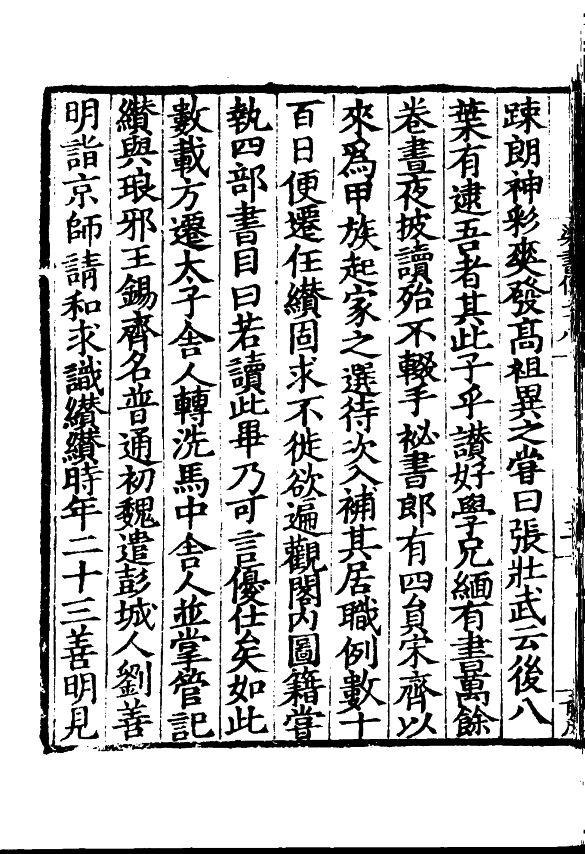 踈朗神彩爽發髙祖異之嘗曰張壯武云後八
葉有逮吾者其此子乎讃好學兄緬有書萬餘
卷晝夜披讀殆不輟手祕書郎有四貟宋齊以
來爲甲族起家之選待次入補其居職例數十
百日便遷任纉固求不徙欲遍觀閣内圖籍嘗
執四部書目曰若讀此畢乃可言優仕矣如此
數載方遷太子舎人轉洗馬中舎人並掌管記
纉與琅邪王錫齊名普通初魏遣彭城人劉善
明詣京師請和求識纉纉時年二十三善明見